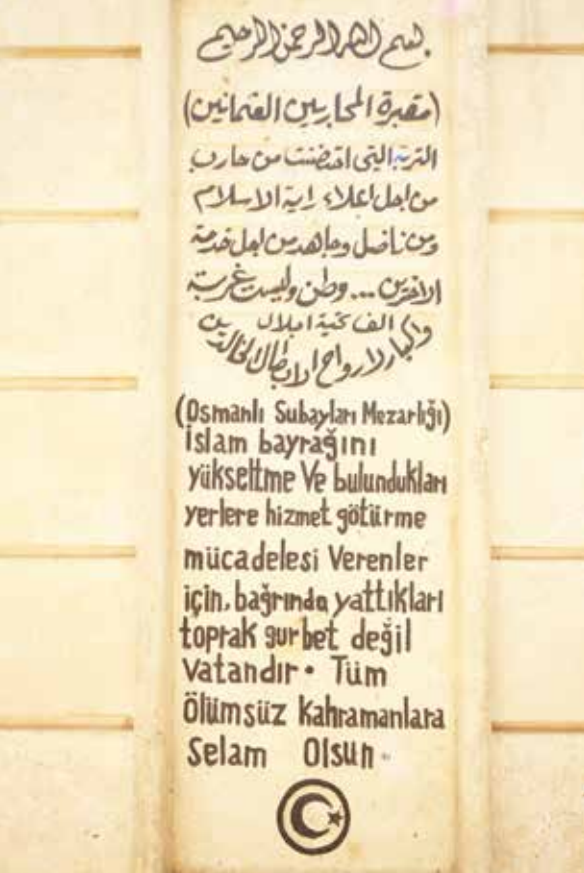 بسم الله الرحمن الرحيم
(مقبرة المحاربين العثمانيين)
التربة التي احتضنت من حارب
من اجل اعلاء راية الاسلام
ومن ناضل وجاهد من اجل خدمة
الاخرين ... وطن وليست غربة
الف تحية اجلال
واكبار لارواح الابطال الخالدين
(Osmanlı Subayları Mezarlığı)
İslam bayrağını
yükseltme Ve bulundukları
yerlere hizmet götürme
mücadelesi Verenler
için, bağrında yattıkları
toprak gurbet değil
Vatandır. Tüm
Ölümsüz Kahramanlara
Selam Olsun